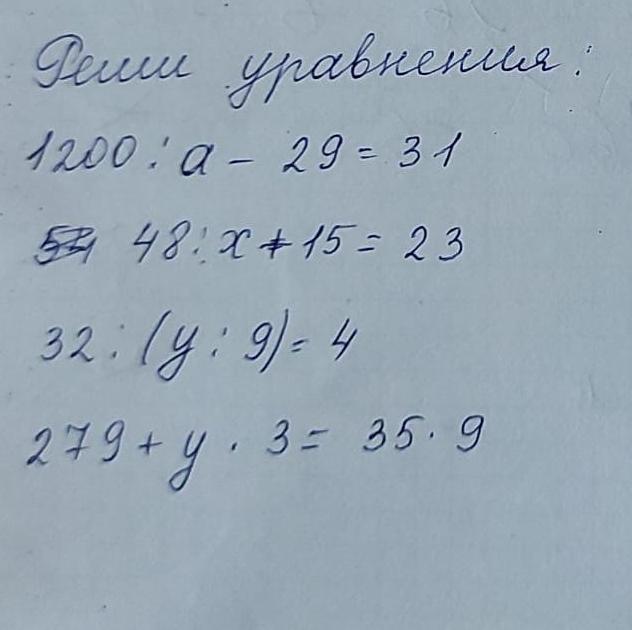 Реши уравнения:
1200 : а - 29 = 31
48 : х + 15 = 23
32 : (у : 9) = 4
279 + у · 3 = 35 · 9